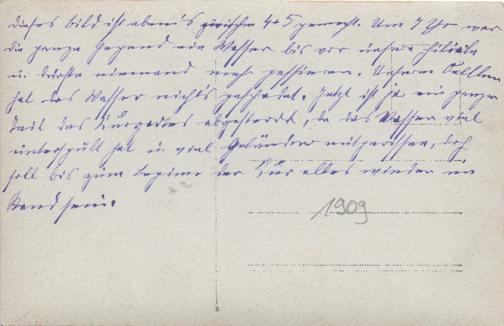 Dieses Bild ist abends zwischen 4 + 5 gemacht. Um 7 Uhr war
die ganze Gegend ein Wasser bis vor unsere Filiale
u. durfte niemand mehr passieren. Unseren Quellen
hat das Wasser nichts geschadet. Jetzt ist ja ein ganzer
Teil des Kurgartens abgesperrt, da das Wasser viel
unterspült hat u. viel Geländer mitgerissen, doch
soll bis zum Beginne der Kur alles wieder im
Stand sein.
1909